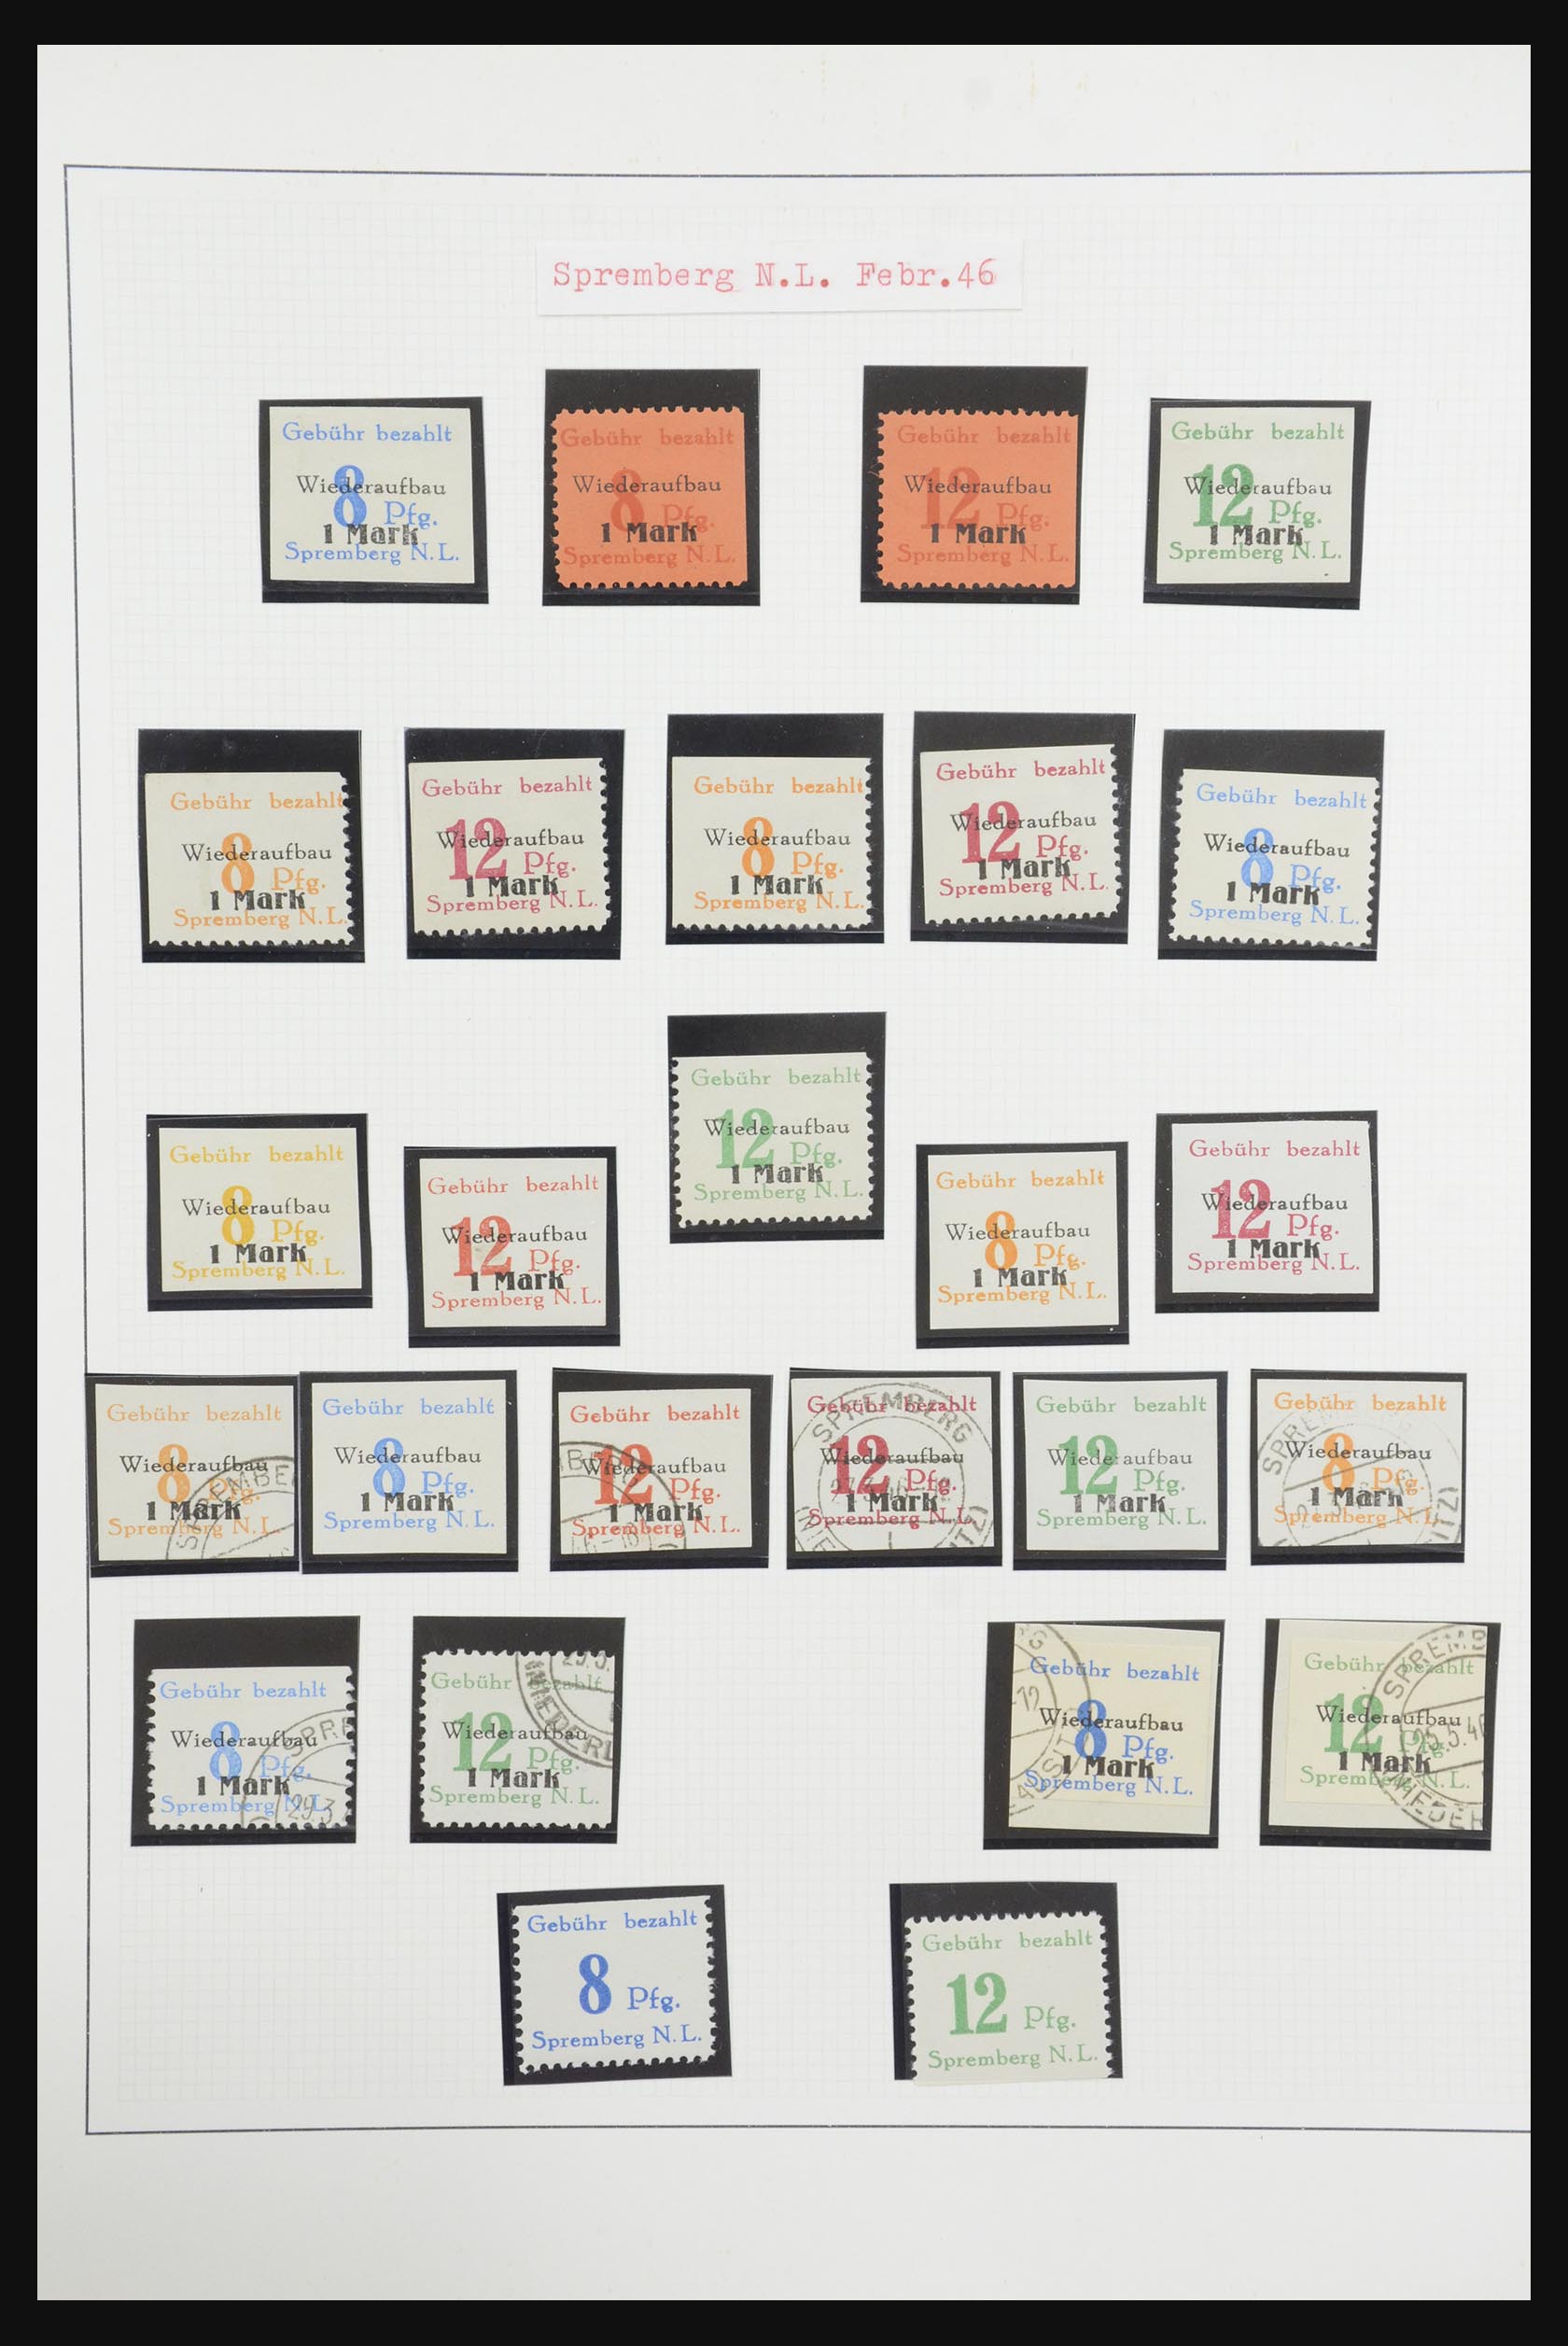 Spremberg N.L. Febr.46
Gebühr bezahlt
Wiederaufbau
8 Pfg.
1 Mark
Spremberg N.L.
Gebühr bezahlt
Wiederaufbau
8 Pfg.
1 Mark
Spremberg N.L.
Gebühr bezahlt
Wiederaufbau
12 Pfg.
1 Mark
Spremberg N.L.
Gebühr bezahlt
Wiederaufbau
12 Pfg.
1 Mark
Spremberg N.L.
Gebühr bezahlt
Wiederaufbau
8 Pfg.
1 Mark
Spremberg N.L.
Gebühr bezahlt
Wiederaufbau
12 Pfg.
1 Mark
Spremberg N.L.
Gebühr bezahlt
Wiederaufbau
8 Pfg.
1 Mark
Spremberg N.L.
Gebühr bezahlt
Wiederaufbau
12 Pfg.
1 Mark
Spremberg N.L.
Gebühr bezahlt
Wiederaufbau
8 Pfg.
1 Mark
Spremberg N.L.
Gebühr bezahlt
Wiederaufbau
8 Pfg.
1 Mark
Spremberg N.L.
Gebühr bezahlt
Wiederaufbau
12 Pfg.
1 Mark
Spremberg N.L.
Gebühr bezahlt
Wiederaufbau
12 Pfg.
1 Mark
Spremberg N.L.
Gebühr bezahlt
Wiederaufbau
8 Pfg.
1 Mark
Spremberg N.L.
Gebühr bezahlt
Wiederaufbau
12 Pfg.
1 Mark
Spremberg N.L.
Gebühr bezahlt
Wiederaufbau
8 Pfg.
1 Mark
Spremberg N.L.
SPREMBE
Gebühr bezahlt
Wiederaufbau
8 Pfg.
1 Mark
Spremberg N.L.
Gebühr bezahlt
Wiederaufbau
12 Pfg.
1 Mark
Spremberg N.L.
Gebühr bezahlt
Wiederaufbau
12 Pfg.
1 Mark
Spremberg N.L.
SPREMBERG
Gebühr bezahlt
Wiederaufbau
12 Pfg.
1 Mark
Spremberg N.L.
Gebühr bezahlt
Wiederaufbau
8 Pfg.
1 Mark
Spremberg N.L.
Gebühr bezahlt
Wiederaufbau
8 Pfg.
1 Mark
Spremberg N.L.
SPRE
29.3
Gebühr bezahlt
Wiederaufbau
12 Pfg.
1 Mark
Spremberg N.L.
NIEDERL
Gebühr bezahlt
Wiederaufbau
8 Pfg.
1 Mark
Spremberg N.L.
Gebühr bezahlt
Wiederaufbau
12 Pfg.
1 Mark
Spremberg N.L.
SPREMB
25.5.46
NIEDER
Gebühr bezahlt
8 Pfg.
Spremberg N.L.
Gebühr bezahlt
12 Pfg.
Spremberg N.L.